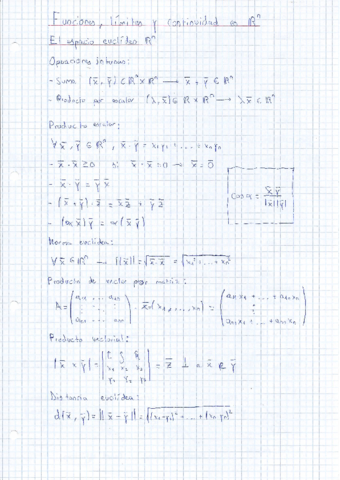 Funciones, límites y continuidad en ℝⁿ
El espacio euclídeo ℝⁿ
Operaciones internas:
- Suma (x̄, ȳ) ∈ ℝⁿ x ℝⁿ → x̄ + ȳ ∈ ℝⁿ
- Producto por escalar (λ, x̄) ∈ ℝ x ℝⁿ → λx̄ ∈ ℝⁿ
Producto escalar:
∀ x̄, ȳ ∈ ℝⁿ, x̄ · ȳ = x₁y₁ + ... + xₙyₙ
- x̄ · x̄ ≥ 0 si x̄ · x̄ = 0 → x̄ = 0̄
- x̄ · ȳ = ȳ x̄
cos α = x̄ȳ / |x̄||ȳ|
- (x̄ + ȳ) · z̄ = x̄z̄ + ȳz̄
- (α x̄) ȳ = α (x̄ ȳ)
Norma euclídea:
∀ x̄ ∈ ℝⁿ → ||x̄|| = √x̄ · x̄ = √x₁² + ... + xₙ²
Producto de vector por matriz:
A = (a₁₁ ... a₁ₙ ⋮ aₙ₁ ... aₙₙ) · x̄ (x₁, ..., xₙ) = (a₁₁x₁ + ... + a₁ₙxₙ ⋮ aₙ₁x₁ + ... + aₙₙxₙ)
Producto vectorial:
|x̄ x ȳ| = |i j k x₁ x₂ x₃ y₁ y₂ y₃| = z̄ ⊥ a x̄ e ȳ
Distancia euclídea:
d(x̄, ȳ) = ||x̄ - ȳ|| = √(x₁-y₁)² + ... + (xₙ-yₙ)²